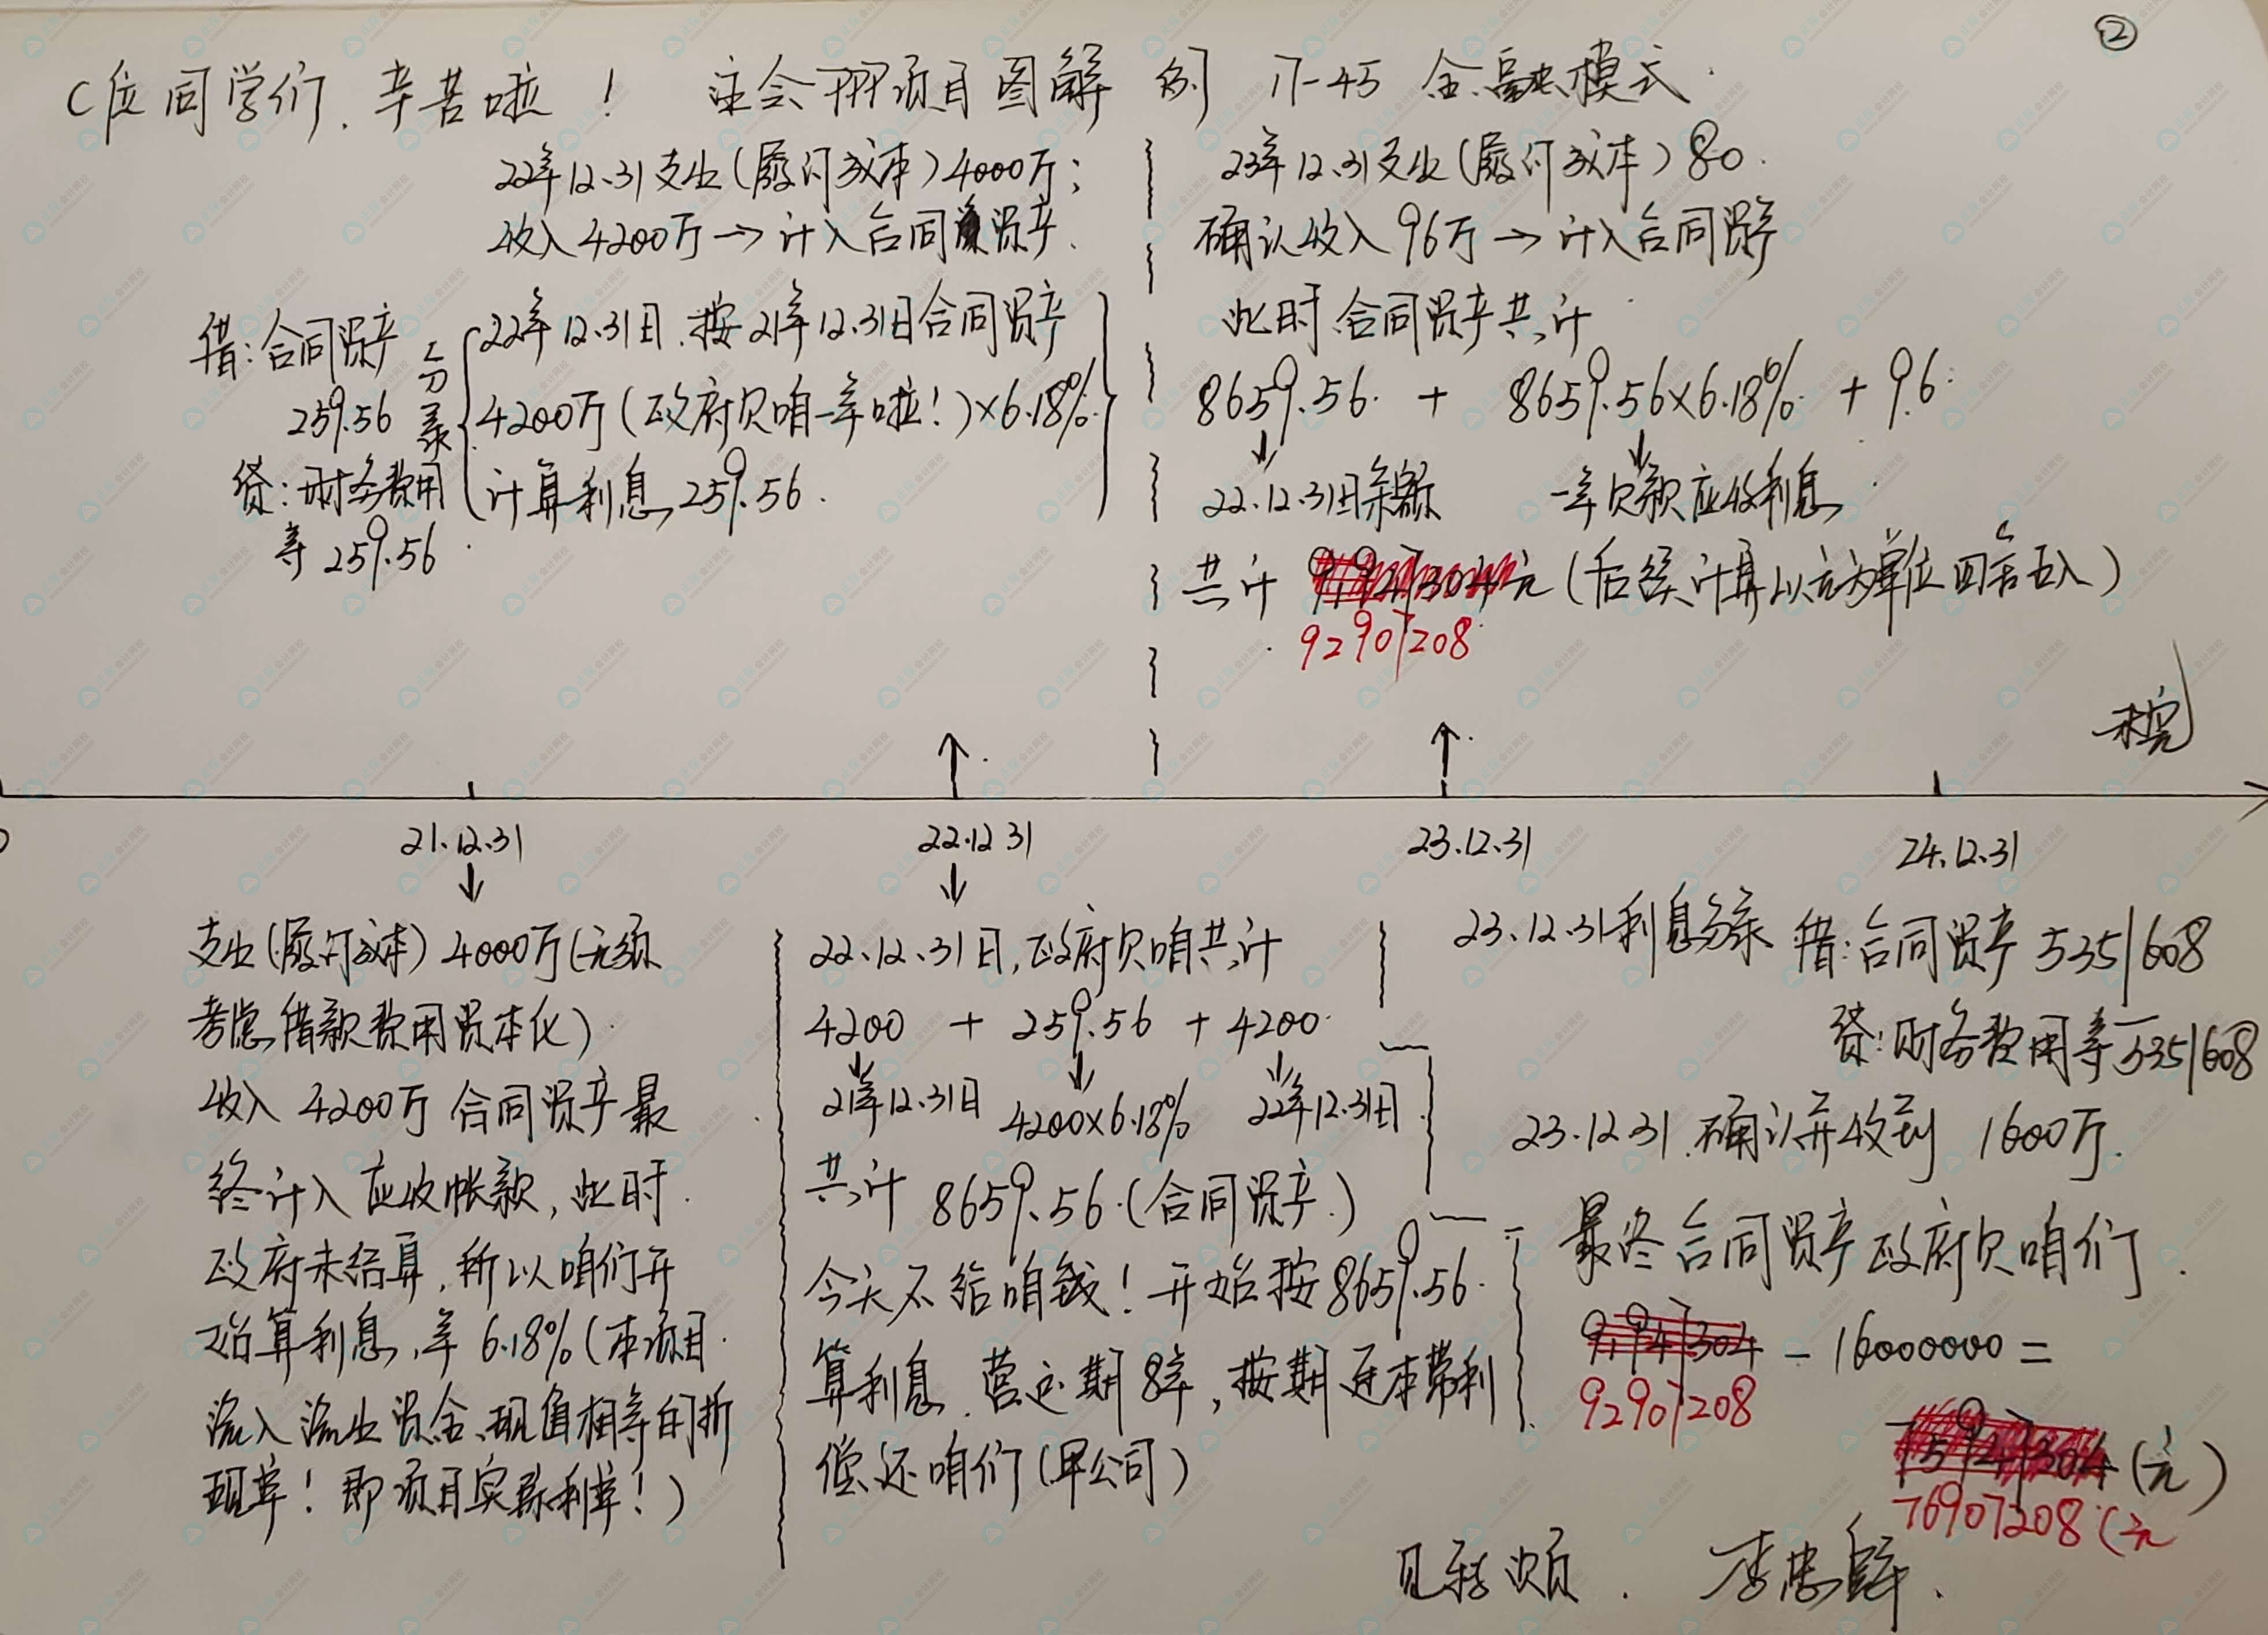 ②
C位同学们、辛苦啦! 注会PPP项目图解 例 17-45 金融模式.
22年12.31支出(履约成本)4000万;
收入4200万→计入合同资产.
借:合同资产
259.56
贷:财务费用
等 259.56
分录
22年12.31日.按21年12.31日合同资产
4200万(政府欠咱一年啦!)×6.18%
计算利息 259.56.
23年12.31支出(履约成本)80.
确认收入96万→计入合同资产
此时合同资产共计
8659.56. + 8659.56×6.18% + 96.
22.12.31日余额 一年欠款应收利息
共计 元(后续计算以元为单位四舍五入)
92907208
未完
21.12.31
22.12 31
23.12.31
24.12.31
支出(履约成本)4000万(无须
考虑借款费用资本化)
收入4200万 合同资产最
终计入应收帐款,此时
政府未结算,所以咱们开
始算利息,率6.18%(本项目
流入流出资金现值相等的折
现率!即项目实际利率!)
22.12.31日,政府欠咱共计
4200 + 259.56 + 4200
21年12.31日 4200×6.18% 22年12.31日
共计 8659.56.(合同资产.)
今天不给咱钱!开始按8659.56
算利息.营运期8年,按期还本带利
偿还咱们(甲公司)
23.12.31利息分录 借:合同资产 5351608
贷:财务费用等 5351608
23.12.31.确认并收到 1600万.
最终合同资产政府欠咱们.
- 16000000 =
92907208
(元)
76907208(元
李忠魁.